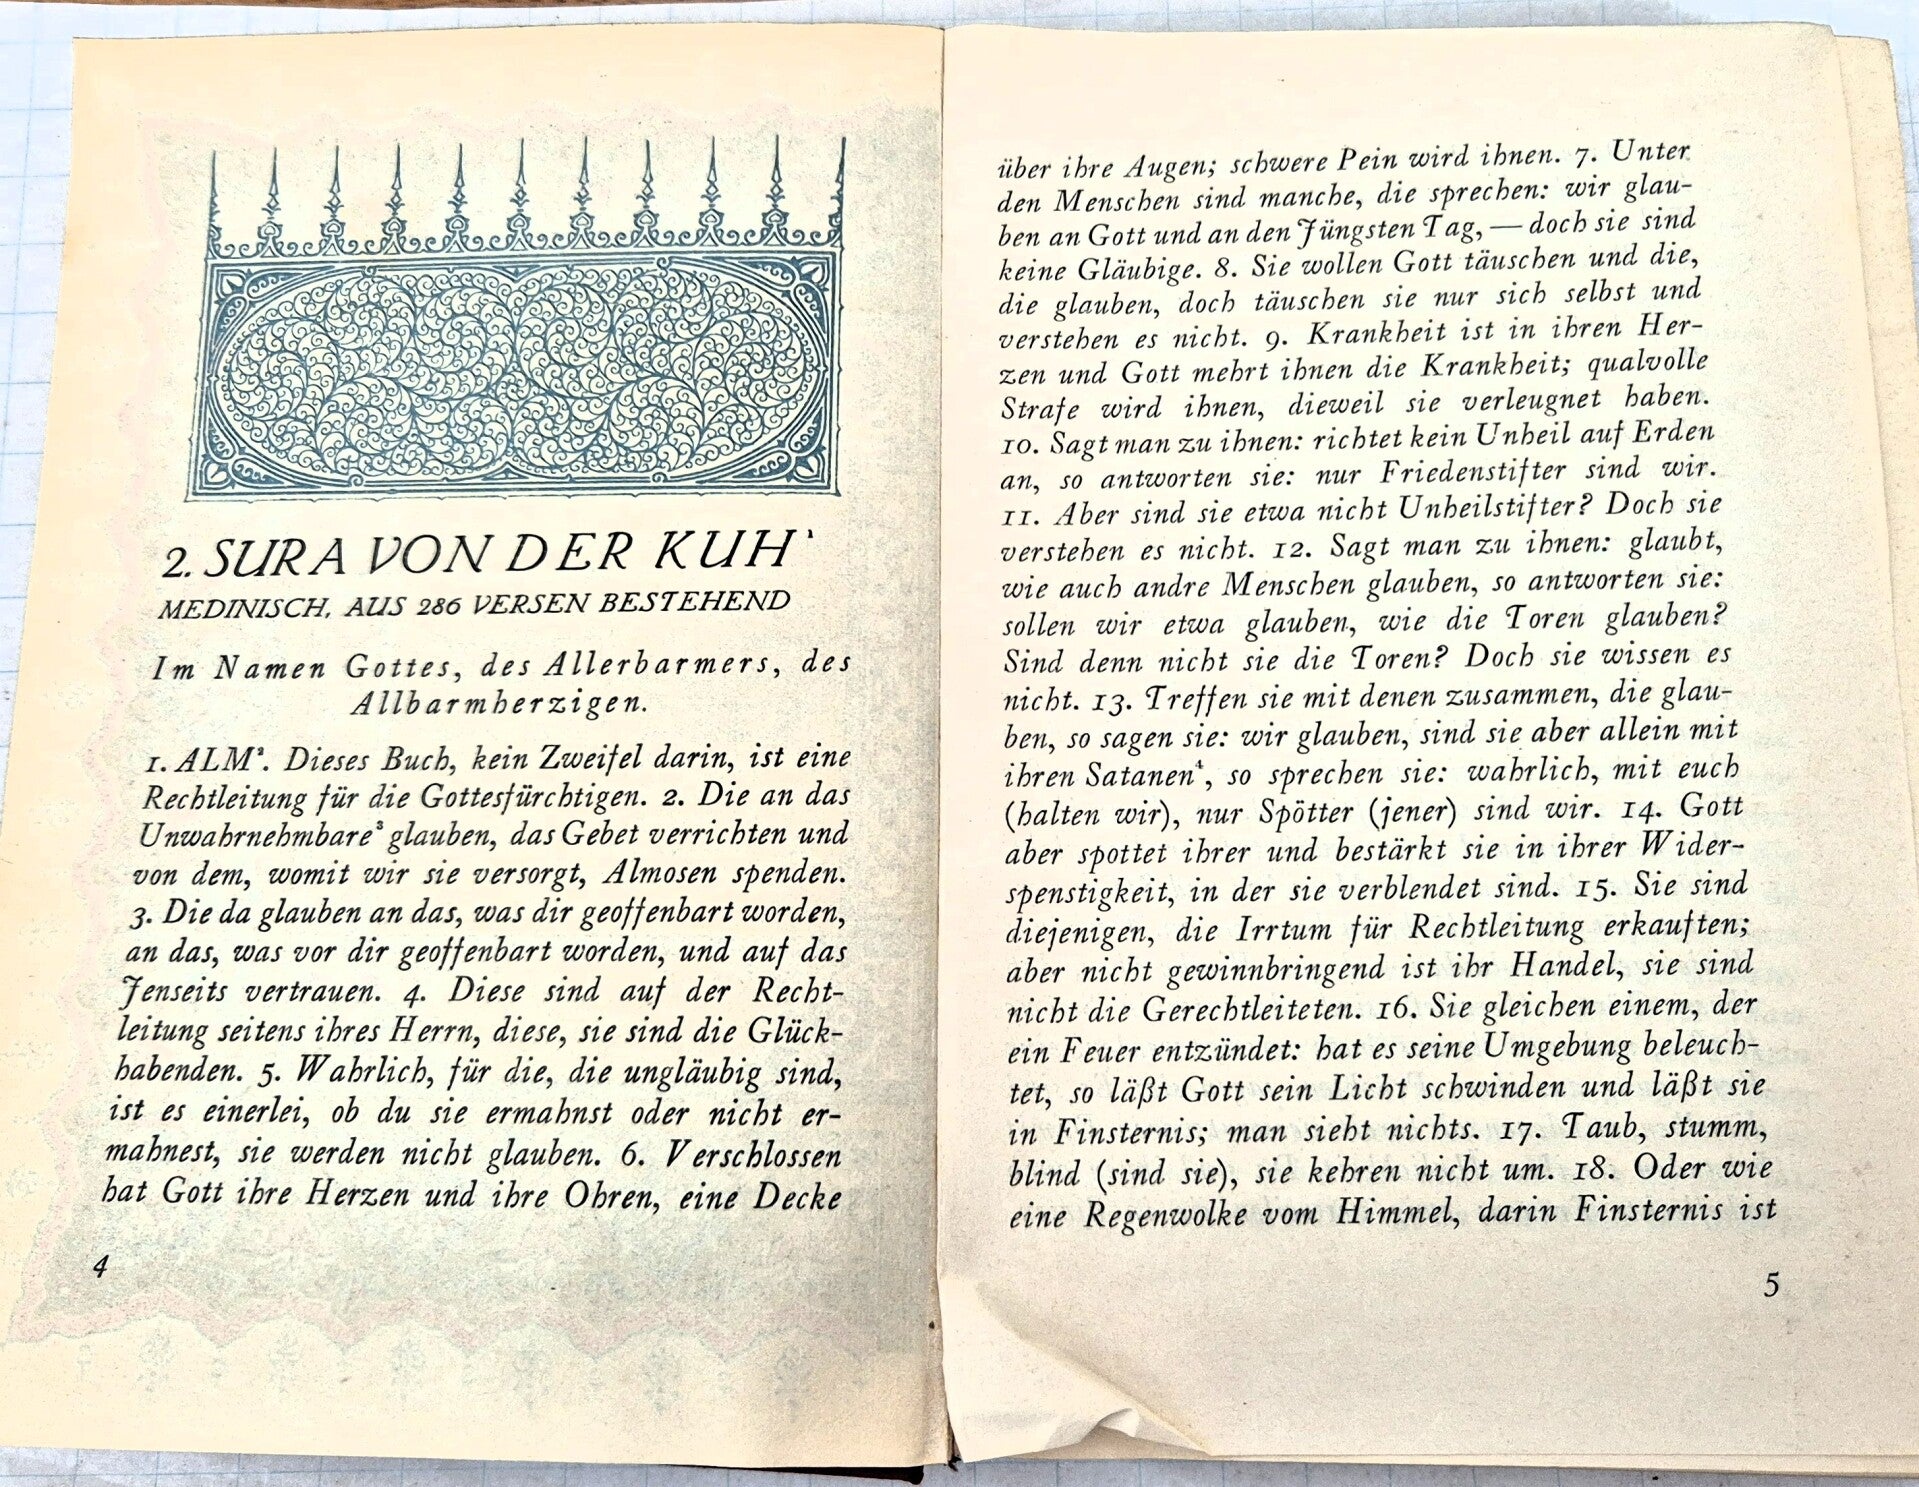 2. SURA VON DER KUH¹
MEDINISCH, AUS 286 VERSEN BESTEHEND
Im Namen Gottes, des Allerbarmers, des
Allbarmherzigen.
1. ALM². Dieses Buch, kein Zweifel darin, ist eine
Rechtleitung für die Gottesfürchtigen. 2. Die an das
Unwahrnehmbare³ glauben, das Gebet verrichten und
von dem, womit wir sie versorgt, Almosen spenden.
3. Die da glauben an das, was dir geoffenbart worden,
an das, was vor dir geoffenbart worden, und auf das
Jenseits vertrauen. 4. Diese sind auf der Recht-
leitung seitens ihres Herrn, diese, sie sind die Glück-
habenden. 5. Wahrlich, für die, die ungläubig sind,
ist es einerlei, ob du sie ermahnst oder nicht er-
mahnest, sie werden nicht glauben. 6. Verschlossen
hat Gott ihre Herzen und ihre Ohren, eine Decke
4
über ihre Augen; schwere Pein wird ihnen. 7. Unter
den Menschen sind manche, die sprechen: wir glau-
ben an Gott und an den Jüngsten Tag, — doch sie sind
keine Gläubige. 8. Sie wollen Gott täuschen und die,
die glauben, doch täuschen sie nur sich selbst und
verstehen es nicht. 9. Krankheit ist in ihren Her-
zen und Gott mehrt ihnen die Krankheit; qualvolle
Strafe wird ihnen, dieweil sie verleugnet haben.
10. Sagt man zu ihnen: richtet kein Unheil auf Erden
an, so antworten sie: nur Friedenstifter sind wir.
11. Aber sind sie etwa nicht Unheilstifter? Doch sie
verstehen es nicht. 12. Sagt man zu ihnen: glaubt,
wie auch andre Menschen glauben, so antworten sie:
sollen wir etwa glauben, wie die Toren glauben?
Sind denn nicht sie die Toren? Doch sie wissen es
nicht. 13. Treffen sie mit denen zusammen, die glau-
ben, so sagen sie: wir glauben, sind sie aber allein mit
ihren Satanen⁴, so sprechen sie: wahrlich, mit euch
(halten wir), nur Spötter (jener) sind wir. 14. Gott
aber spottet ihrer und bestärkt sie in ihrer Wider-
spenstigkeit, in der sie verblendet sind. 15. Sie sind
diejenigen, die Irrtum für Rechtleitung erkauften;
aber nicht gewinnbringend ist ihr Handel, sie sind
nicht die Gerechtleiteten. 16. Sie gleichen einem, der
ein Feuer entzündet: hat es seine Umgebung beleuch-
tet, so läßt Gott sein Licht schwinden und läßt sie
in Finsternis; man sieht nichts. 17. Taub, stumm,
blind (sind sie), sie kehren nicht um. 18. Oder wie
eine Regenwolke vom Himmel, darin Finsternis ist
5